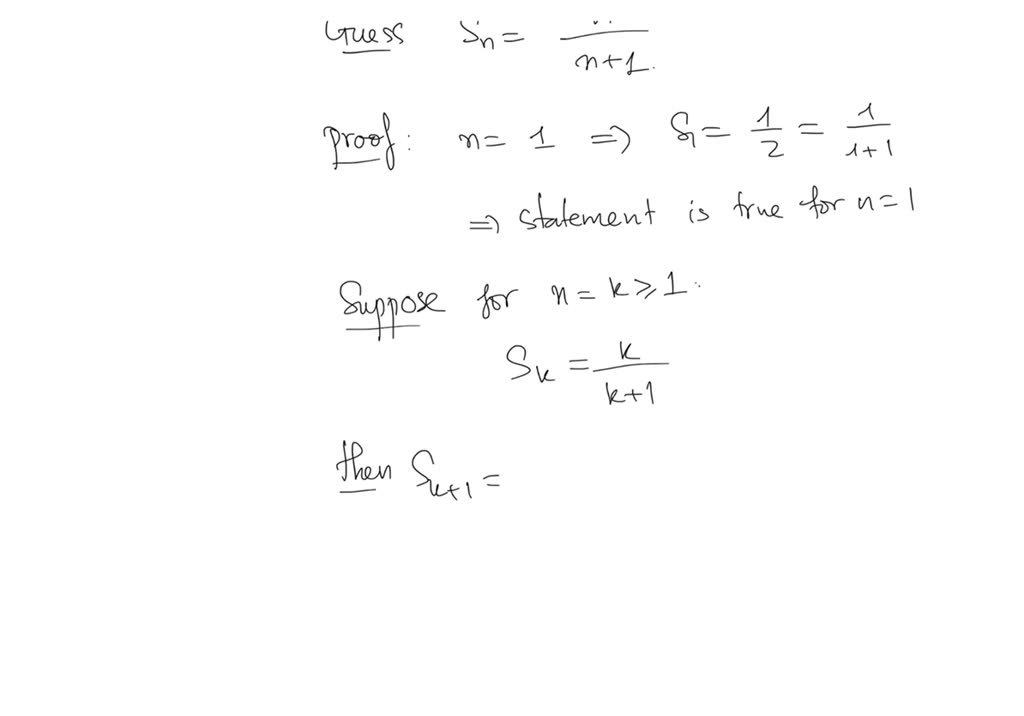 Guess Sn =  / n+1.
Proof: n = 1 ⇒ S1 = 1/2 = 1/1+1
⇒ statement is true for n = 1
Suppose for n = k ⩾ 1.
Sk = k/k+1
then Sk+1 =